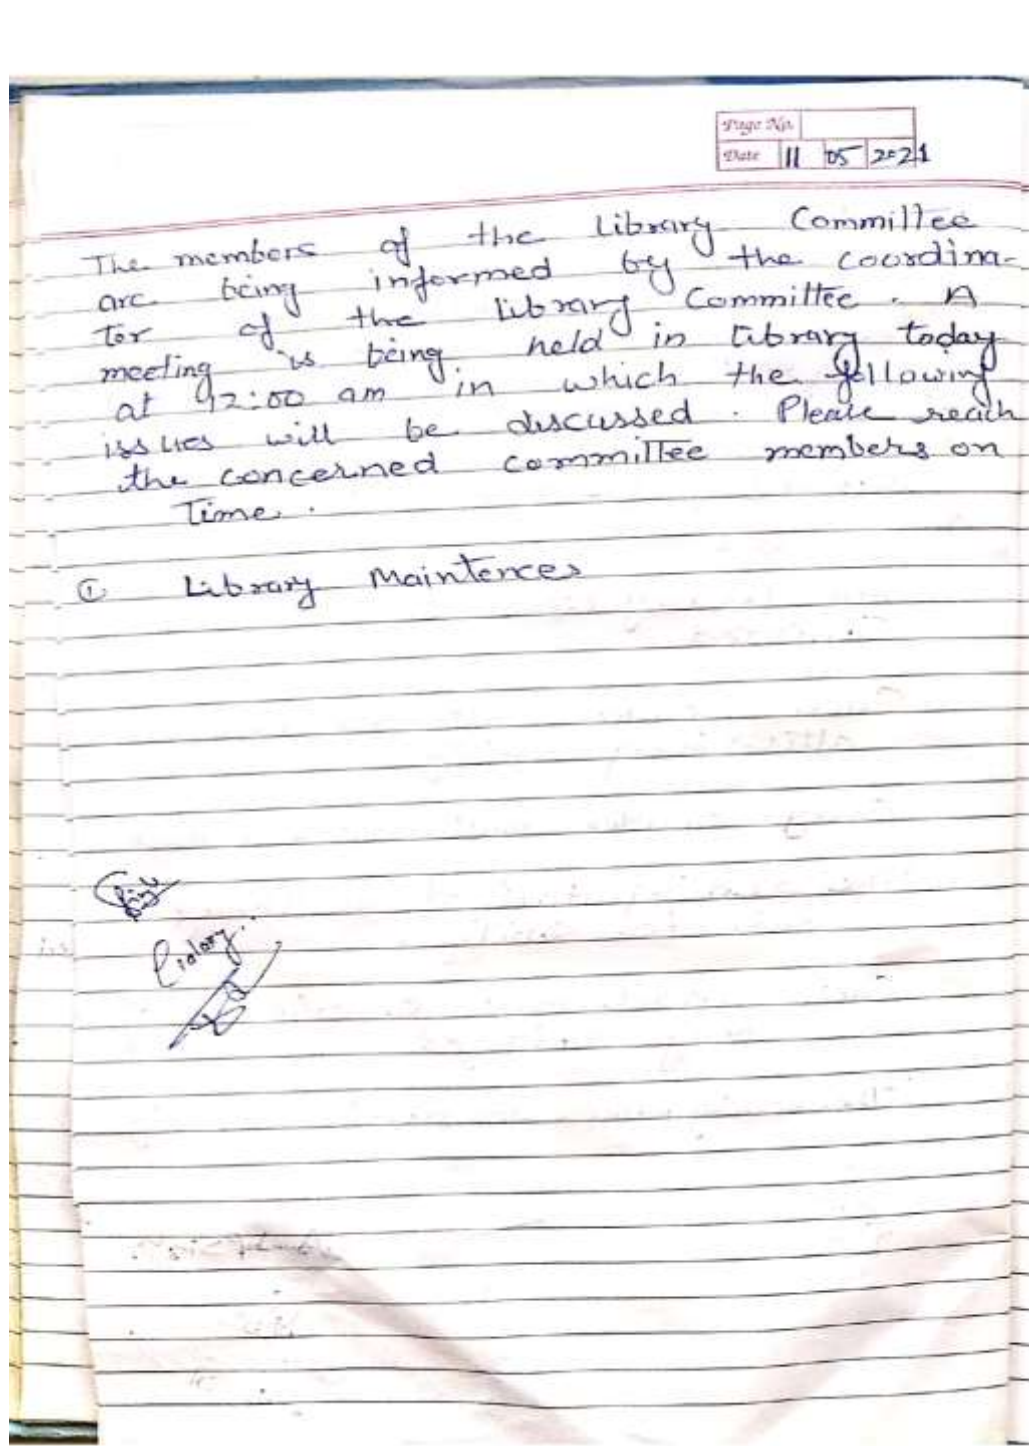 Page No.
Date 11 05 2021
The members of the Library Committee
are being informed by the coordina-
tor of the Library Committee. A
meeting is being held in Library today
at 12:00 am in which the following
issues will be discussed. Please reach
the concerned committee members on
Time.
① Library Maintences